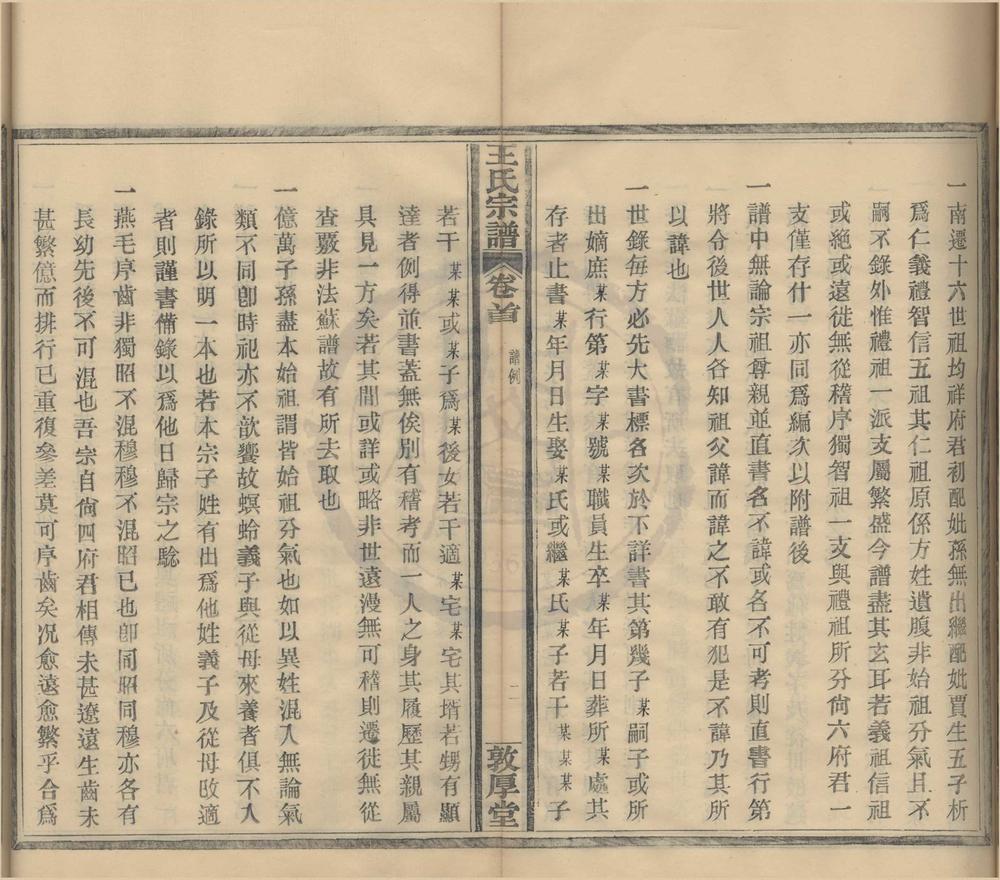 一南遷十六世祖均祥府君初配妣孫無出繼配妣賈生五子析
爲仁義禮智信五祖其仁祖原係方姓遺腹非始祖分氣且不
嗣不錄外惟禮祖一派支屬繁盛今譜盡其玄耳若義祖信祖
或絶或遠徙無從稽序獨智祖一支與禮祖所分尙六府君一
支僅存什一亦同爲編次以附譜後
一譜中無論宗祖尊親並直書名不諱或名不可考則直書行第
將令後世人人各知祖父諱而諱之不敢有犯是不諱乃其所
以諱也
一世錄每方必先大書標名次於下詳書其第幾子某嗣子或所
出嫡庶某行第某字某號某職員生卒某年月日葬所某處其
存者止書某年月日生娶某氏或繼某氏某子若干某某某子
王氏宗譜
卷首
譜例
二
敦厚堂
若干某某或某子爲某後女若干適某宅某宅其壻若甥有顯
達者例得並書蓋無俟別有稽考而一人之身其履歷其親屬
具見一方矣若其間或詳或略非世遠漫無可稽則遷徙無從
查覈非法蘇譜故有所去取也
一億萬子孫盡本始祖謂皆始祖分氣也如以異姓混入無論氣
類不同卽時祀亦不歆饗故螟蛉義子與從母來養者俱不入
錄所以明一本也若本宗子姓有出爲他姓義子及從母改適
者則謹書備錄以爲他日歸宗之騐
一燕毛序齒非獨昭不混穆穆不混昭已也卽同昭同穆亦各有
長幼先後不可混也吾宗自尙四府君相傳未甚遼遠生齒未
甚繁億而排行已重復參差莫可序齒矣况愈遠愈繁乎合爲